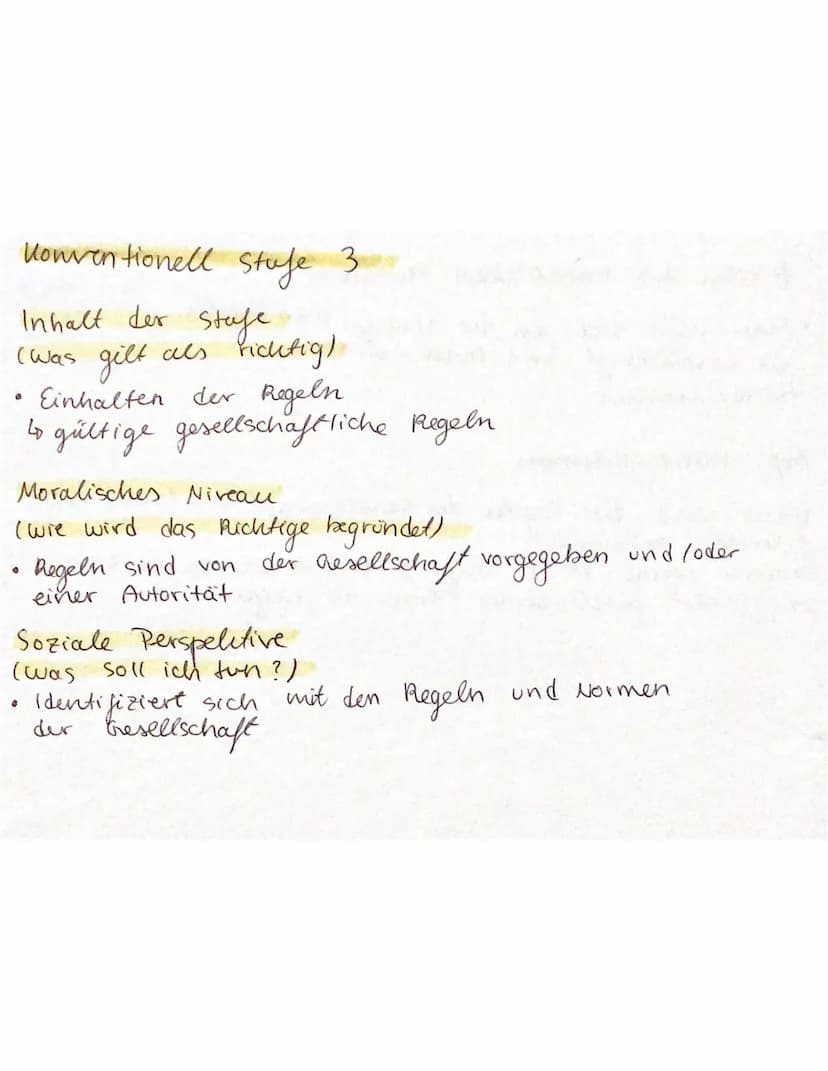 Konventionell Stufe 3
Inhalt der Stufe
(Was gilt als richtig)
• Einhalten der Regeln
↳ gültige gesellschaftliche Regeln
Moralisches Niveau
(Wie wird das Richtige begründet)
• Regeln sind von der Gesellschaft vorgegeben und/oder
einer Autorität
Soziale Perspektive
(Was soll ich tun?)
• Identifiziert sich mit den Regeln und Normen
der Gesellschaft